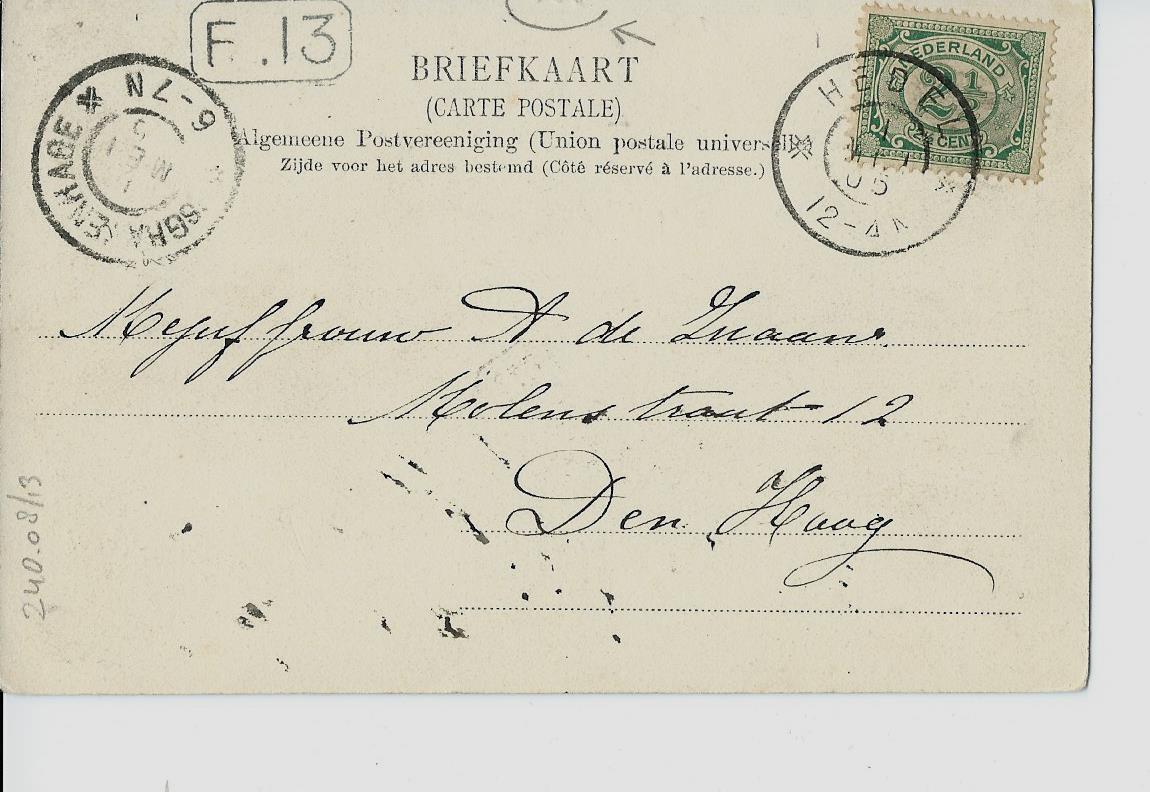 F.13
BRIEFKAART
(CARTE POSTALE)
Algemeene Postvereeniging (Union postale universelle)
Zijde voor het adres bestemd (Côté réservé à l'adresse.)
NEDERLAND
2½
CENT
HEDEL
05
12-
6-7N
Mejuffrouw A de
Molenstraat 12
Den Haag
240.08/13